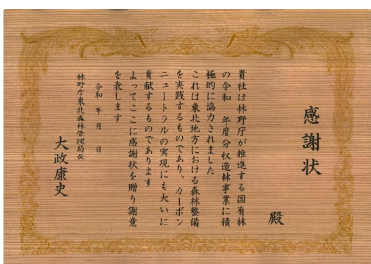 感謝状
殿
貴社は林野庁が推進する国有林
の令和　年度分収造林事業に積
極的に協力されました
これは東北地方における森林整備
を実践するものであり、カーボン
ニュートラルの実現にも大いに
貢献するものであります
よってここに感謝状を贈り謝意
を表します
令和　年　月　日
林野庁東北森林管理局長
大政康史